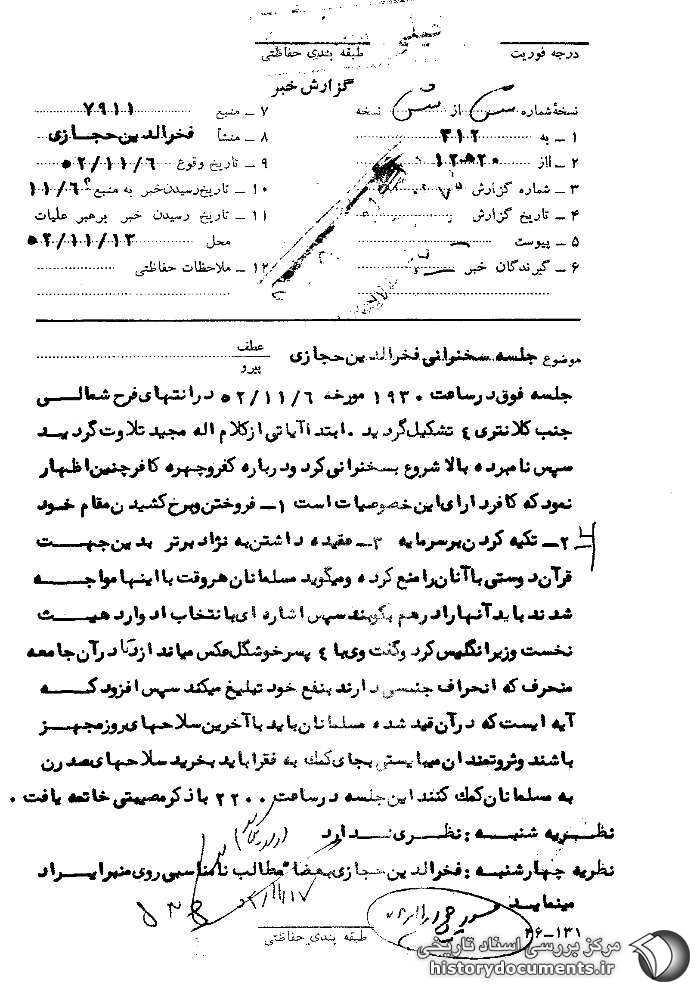 خیلی
درجه فوریت
طبقه بندی حفاظتی
گزارش خبر
نسخهٔ شماره از نسخه
۱ ـ به ۳۱۲
۲ ـ از ۱۲ ۵۲۰
۳ ـ شماره گزارش
۴ ـ تاریخ گزارش
۵ ـ پیوست
۶ ـ گیرندگان خبر
۷ ـ منبع ۷۹۱۱
۸ ـ منشأ فخرالدین حجازی
۹ ـ تاریخ وقوع ۵۲/۱۱/۶
۱۰ ـ تاریخ رسیدن خبر به منبع ۱۱/۶
۱۱ ـ تاریخ رسیدن خبر برهبر عملیات
محل ۵۲/۱۱/۱۳
۱۲ ـ ملاحظات حفاظتی
موضوع جلسه سخنرانی فخرالدین حجازی
عطف
پیرو
جلسه فوق درساعت ۱۹۳۰ مورخه ۵۲/۱۱/۶ درانتهای فرح شمالی
جنب کلانتری ٤ تشکیل گردید .ابتدا آیاتی ازکلام اله مجید تلاوت گردید
سپس نامبرده بالا شروع بسخنرانی کرد ودرباره کفروچهره کافرچنین اظهار
نمود که کافردارای این خصوصیات است ۱ـ فروختن وبرخ کشیدن مقام خود
۲ـ تکیه کردن برسرمایه ۳ـ عقیده داشتن به نژاد برتر بدین جهت
قرآن دوستی با آنان رامنع کرده ومیگوید مسلمانان هروقت با اینها مواجه
شدند باید آنها را درهم بکوبند سپس اشاره ای با انتخاب ادوارد هیث
نخست وزیرانگلیس کرد وگفت وی با ٤ پسرخوشگل عکس میاندازد تا درآن جامعه
منحرف که انحراف جنسی دارند بنفع خود تبلیغ میکند سپس افزود که
آیه ایست که درآن قید شده مسلمانان باید با آخرین سلاحهای روز مجهز
باشند وثروتمندان میبایستی بجای کمك به فقرا باید بخرید سلاحهای مدرن
به مسلمانان کمك کنند این جلسه درساعت ۲۲۰۰ با ذکر مصیبتی خاتمه یافت .
نظریه شنبه : نظری ندارد
نظریه چهارشنبه : فخرالدین حجازی بعضا" مطالب نامناسبی روی منبر ایراد
مینماید
۳۶-۱۳۱
طبقه بندی حفاظتی
مرکز بررسی اسناد تاریخی
historydocuments.ir